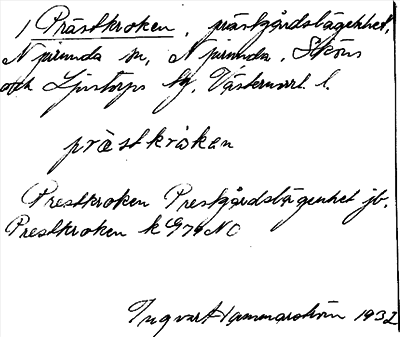 1 Prästkroken, prästgårdslägenhet,
Njurunda sn, Njurunda, Sköns
och Ljustorps tg, Västernorrl. l.
prästkråkan
Prestkroken Prestgårdslägenhet jb.
Prestkroken k G76 NO
Ingvar Hammarström 1932